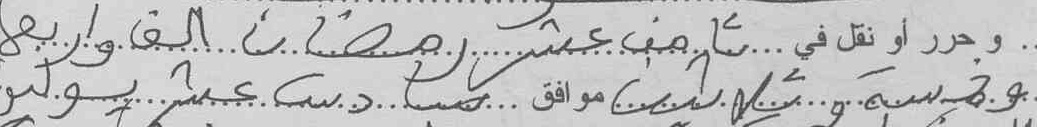 و حرر أو نقل في ... ثامن عشر رمضان الف واربع
و خمسة و ثلاثين موافق ... سادس عشر يوليو